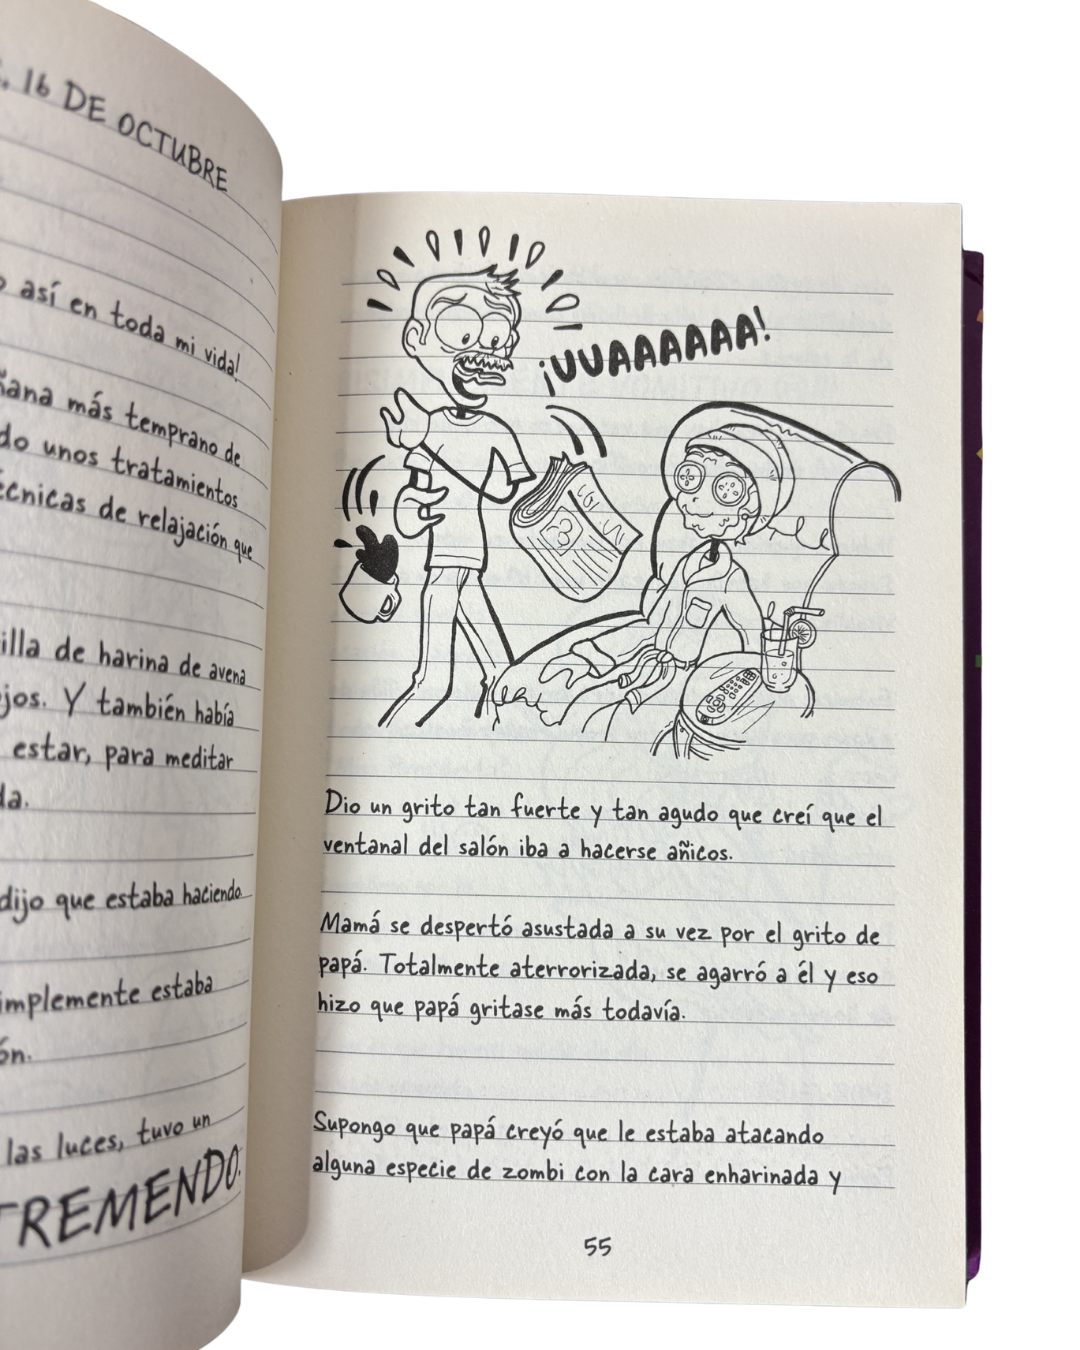 16 DE OCTUBRE
así en toda mi vida!
más temprano de
unos tratamientos
de relajación que
de harina de avena
Y también había
estar, para meditar
dijo que estaba haciendo
estaba
las luces, tuvo un
TREMENDO.
¡UUAAAAAA!
Dio un grito tan fuerte y tan agudo que creí que el
ventanal del salón iba a hacerse añicos.
Mamá se despertó asustada a su vez por el grito de
papá. Totalmente aterrorizada, se agarró a él y eso
hizo que papá gritase más todavía.
Supongo que papá creyó que le estaba atacando
alguna especie de zombi con la cara enharinada y
55